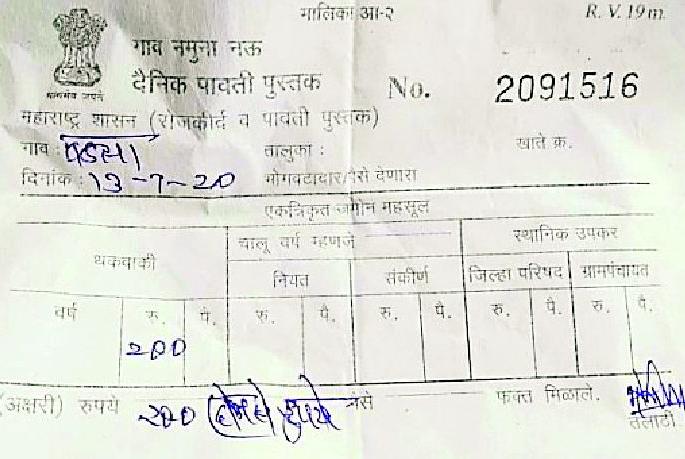 मालिका आ-२ R. V. 19 m.
गाव नमुना नऊ
दैनिक पावती पुस्तक No. 2091516
महाराष्ट्र शासन (रोजकीर्द व पावती पुस्तक)
गाव : तालुका : खाते क्र.
दिनांक : 13-7-20 भोगवटादार/पैसे देणारा
एकत्रिकृत जमीन महसूल
थकबाकी चालू वर्ष म्हणजे स्थानिक उपकर
नियत संकीर्ण जिल्हा परिषद ग्रामपंचायत
वर्ष रु. पै. रु. पै. रु. पै. रु. पै. रु. पै.
200
(अक्षरी) रुपये 200 (दोनशे रुपये पैसे फक्त मिळाले.
तलाठी